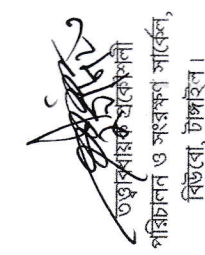 তত্ত্বাবধায়ক প্রকৌশলী
পরিচালন ও সংরক্ষণ সার্কেল,
বিউবো, টাঙ্গাইল।